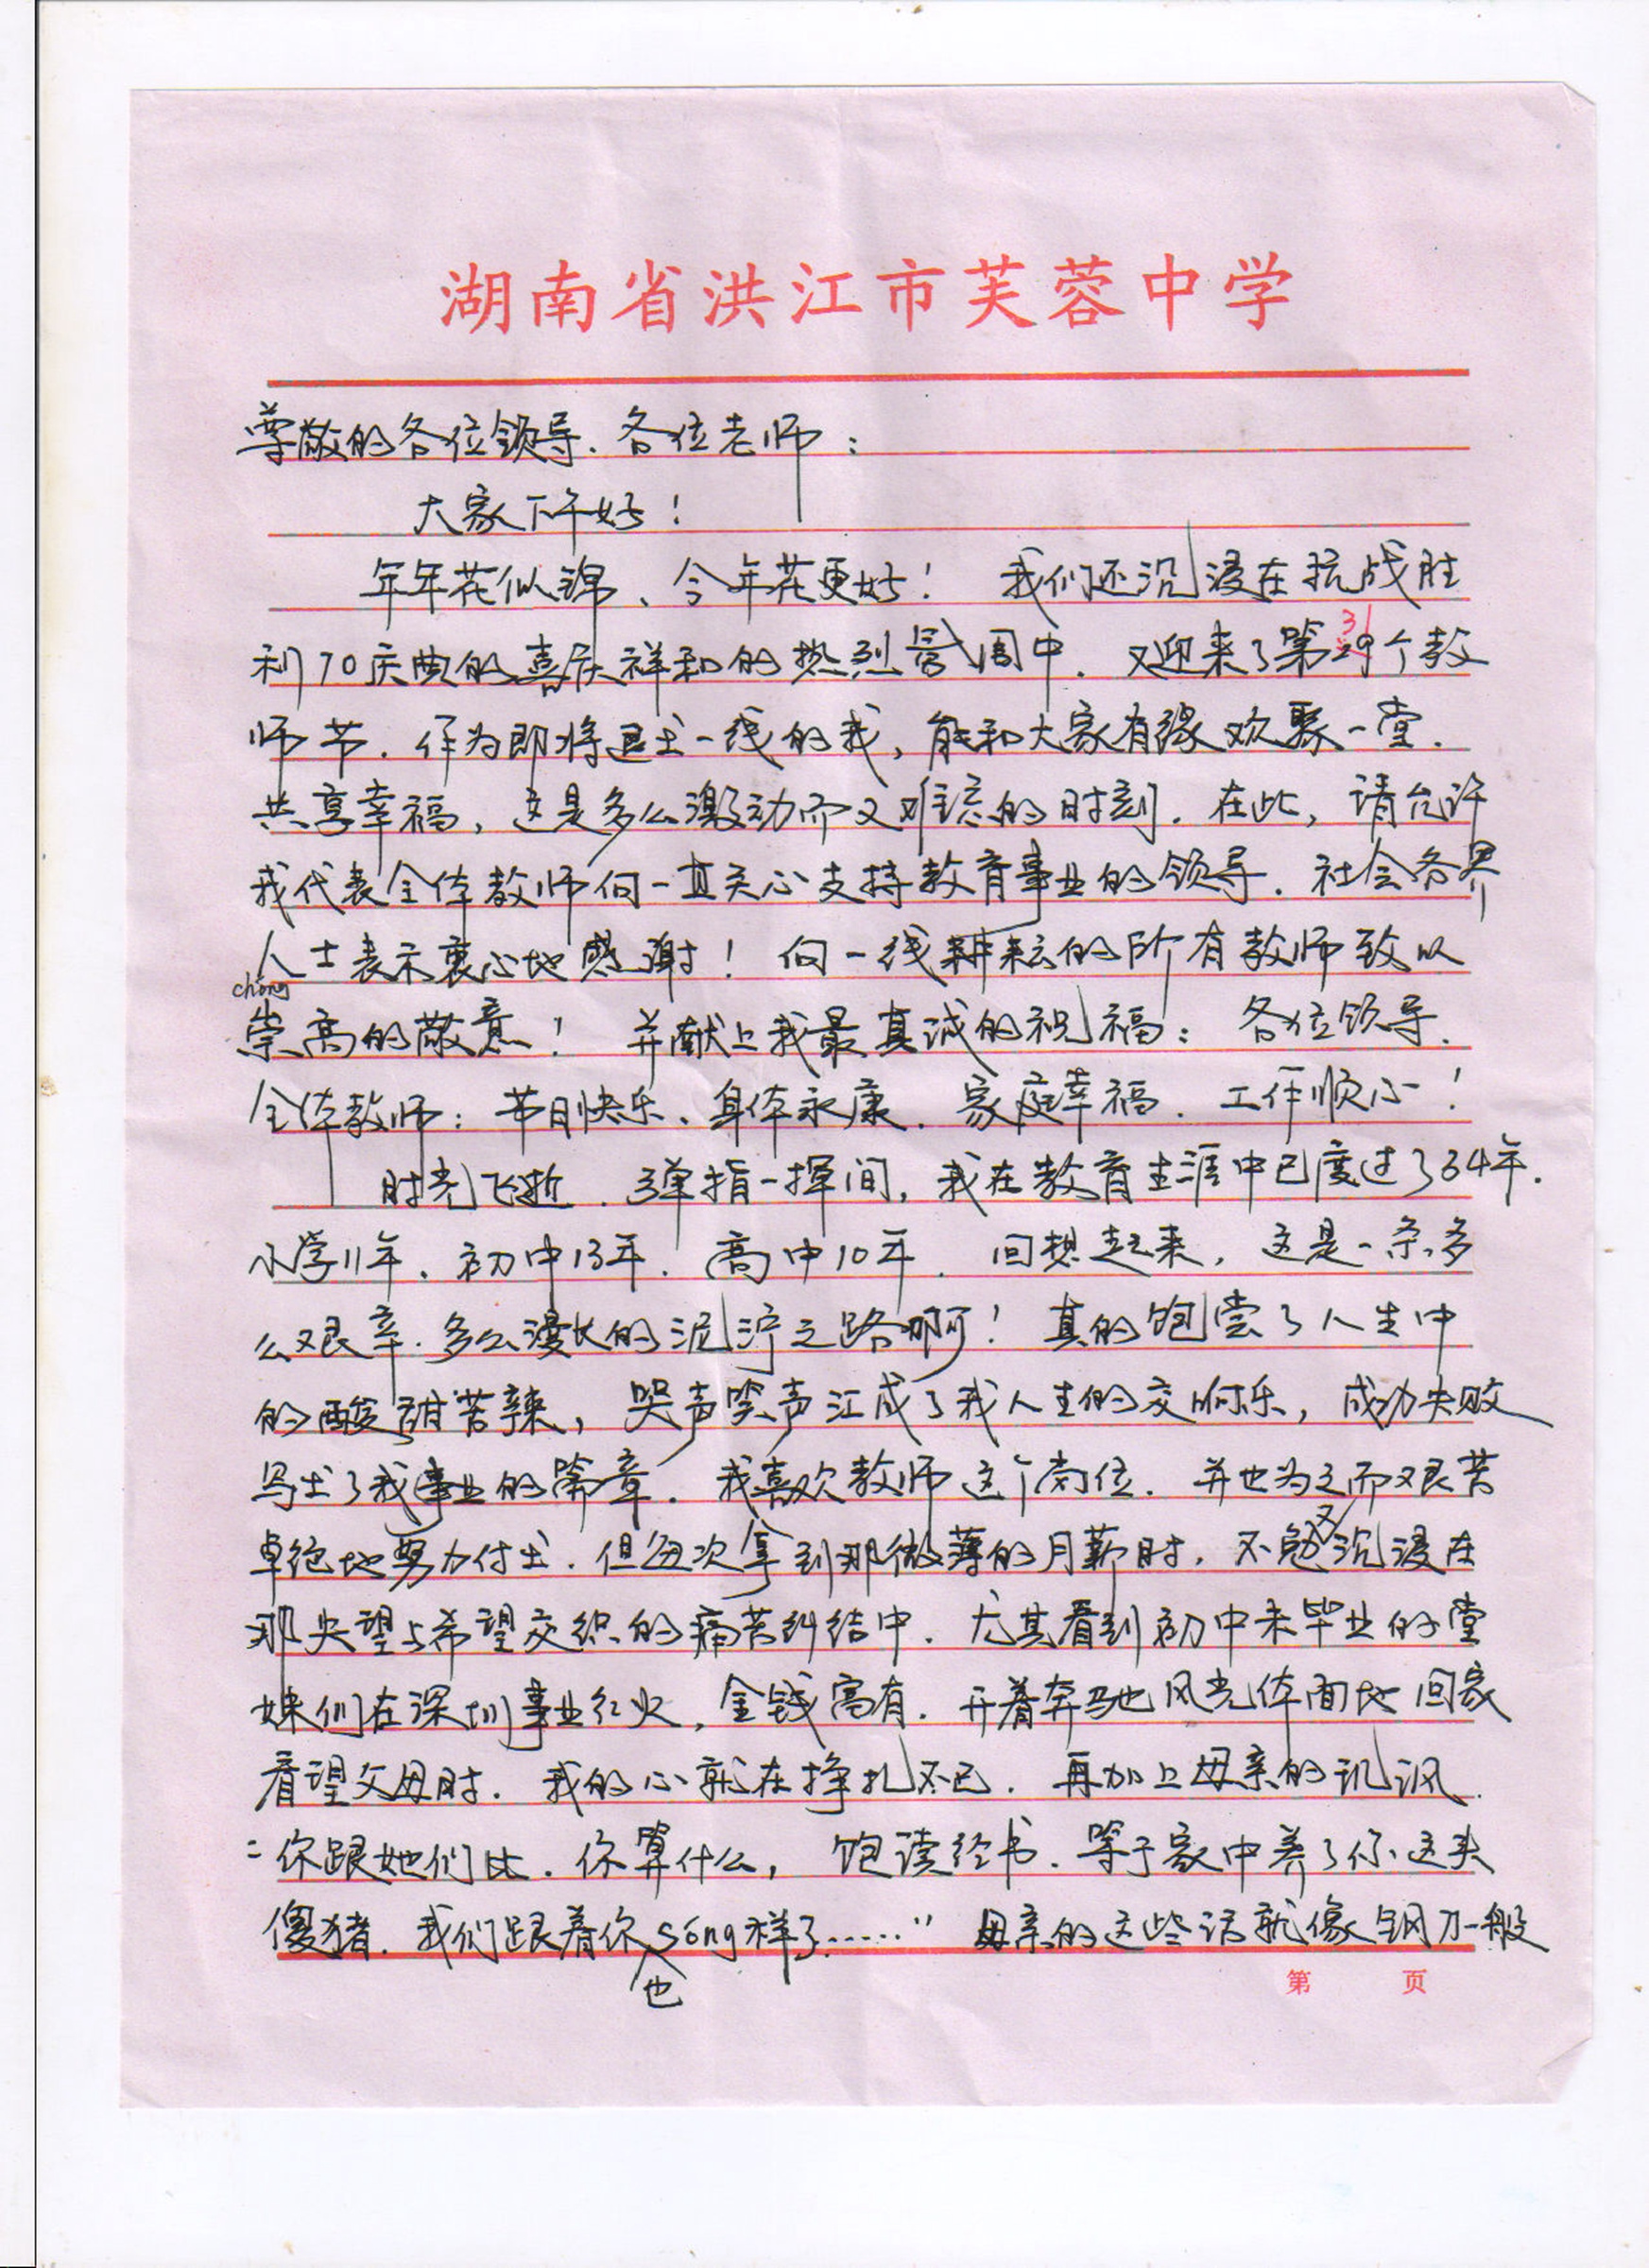 湖南省洪江市芙蓉中学
尊敬的各位领导、各位老师:
大家下午好!
年年花似锦、今年花更好! 我们还沉浸在抗战胜
利70庆典的喜庆祥和的热烈氛围中、又迎来了第31个教
师节、作为即将退出一线的我,能和大家有缘欢聚一堂、
共享幸福,这是多么激动而又难忘的时刻、在此,请允许
我代表全体教师向一直关心支持教育事业的领导、社会各界
人士表示衷心地感谢! 向一线耕耘的所有教师致以
chóng
崇高的敬意! 并献上我最真诚的祝福: 各位领导、
全体教师: 节日快乐、身体永康、家庭幸福、工作顺心!
时光飞逝、弹指一挥间,我在教育生涯中已度过了34年.
小学11年、初中13年、高中10年、回想起来,这是一条多
么艰辛、多么漫长的泥泞之路啊! 真的饱尝了人生中
的酸甜苦辣,哭声笑声汇成了我人生的交响乐,成功失败
写出了我事业的篇章、我喜欢教师这个岗位、并也为之而艰苦
卓绝地努力付出、但每次拿到那微薄的月薪时,不免又沉浸在
那失望与希望交织的痛苦纠结中、尤其看到初中未毕业的堂
妹们在深圳事业红火,金钱富有、开着奔驰风光体面地回家
看望父母时、我的心就在挣扎不已、再加上母亲的讥讽、
“你跟她们比、你算什么, 饱读经书、等于家中养了你这头
傻猪、我们跟着你也sóng样了……” 母亲的这些话就像钢刀一般
第 页